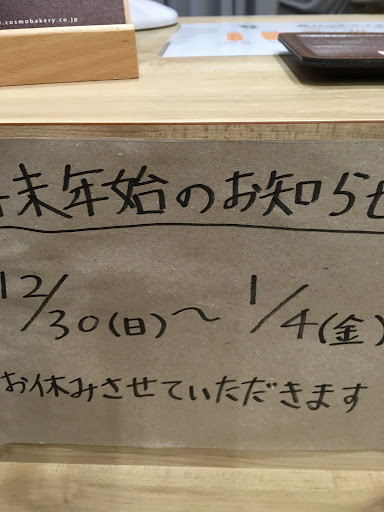 .cosmobakery.co.jp
末年始のお知らせ
12/30(日)〜 1/4(金)
お休みさせていただきます